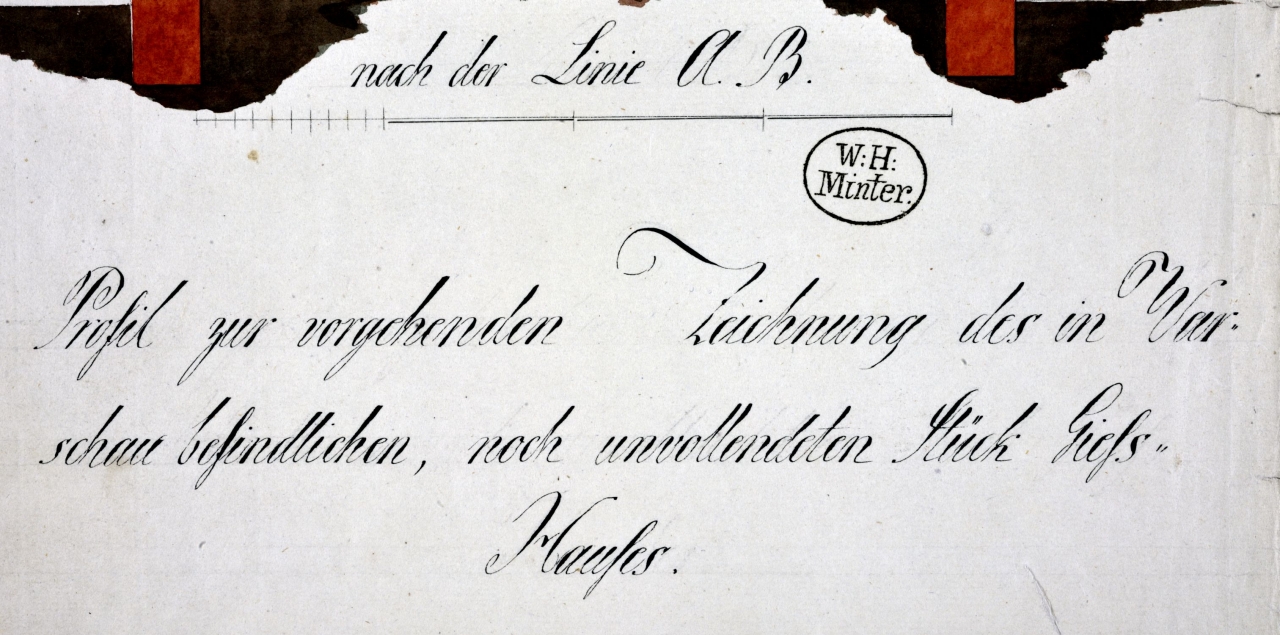 nach der Linie A. B.
W: H:
Minter.
Profil zur vorgehenden Zeichnung des in War-
schau befindlichen, noch unvollendeten Stück Gieſs-
Hauſes.